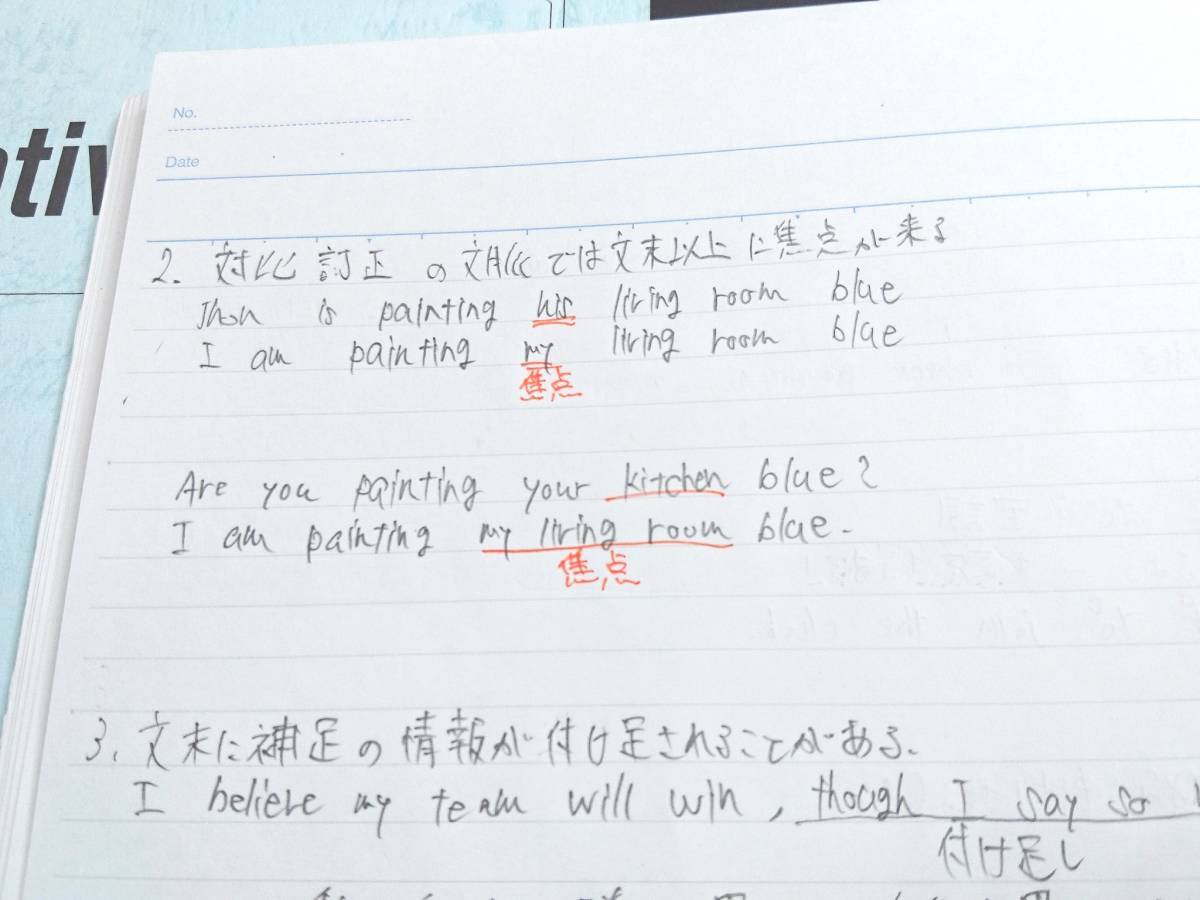 ativ
No.
Date
2. 対比 訂正 の文脈では文末以上に焦点が来る
Jhon is painting his living room blue
I am painting my living room blue
焦点
Are you painting your kitchen blue?
I am painting my living room blue.
焦点
3. 文末に補足の情報が付け足されることがある.
I believe my team will win, though I say so
付け足し